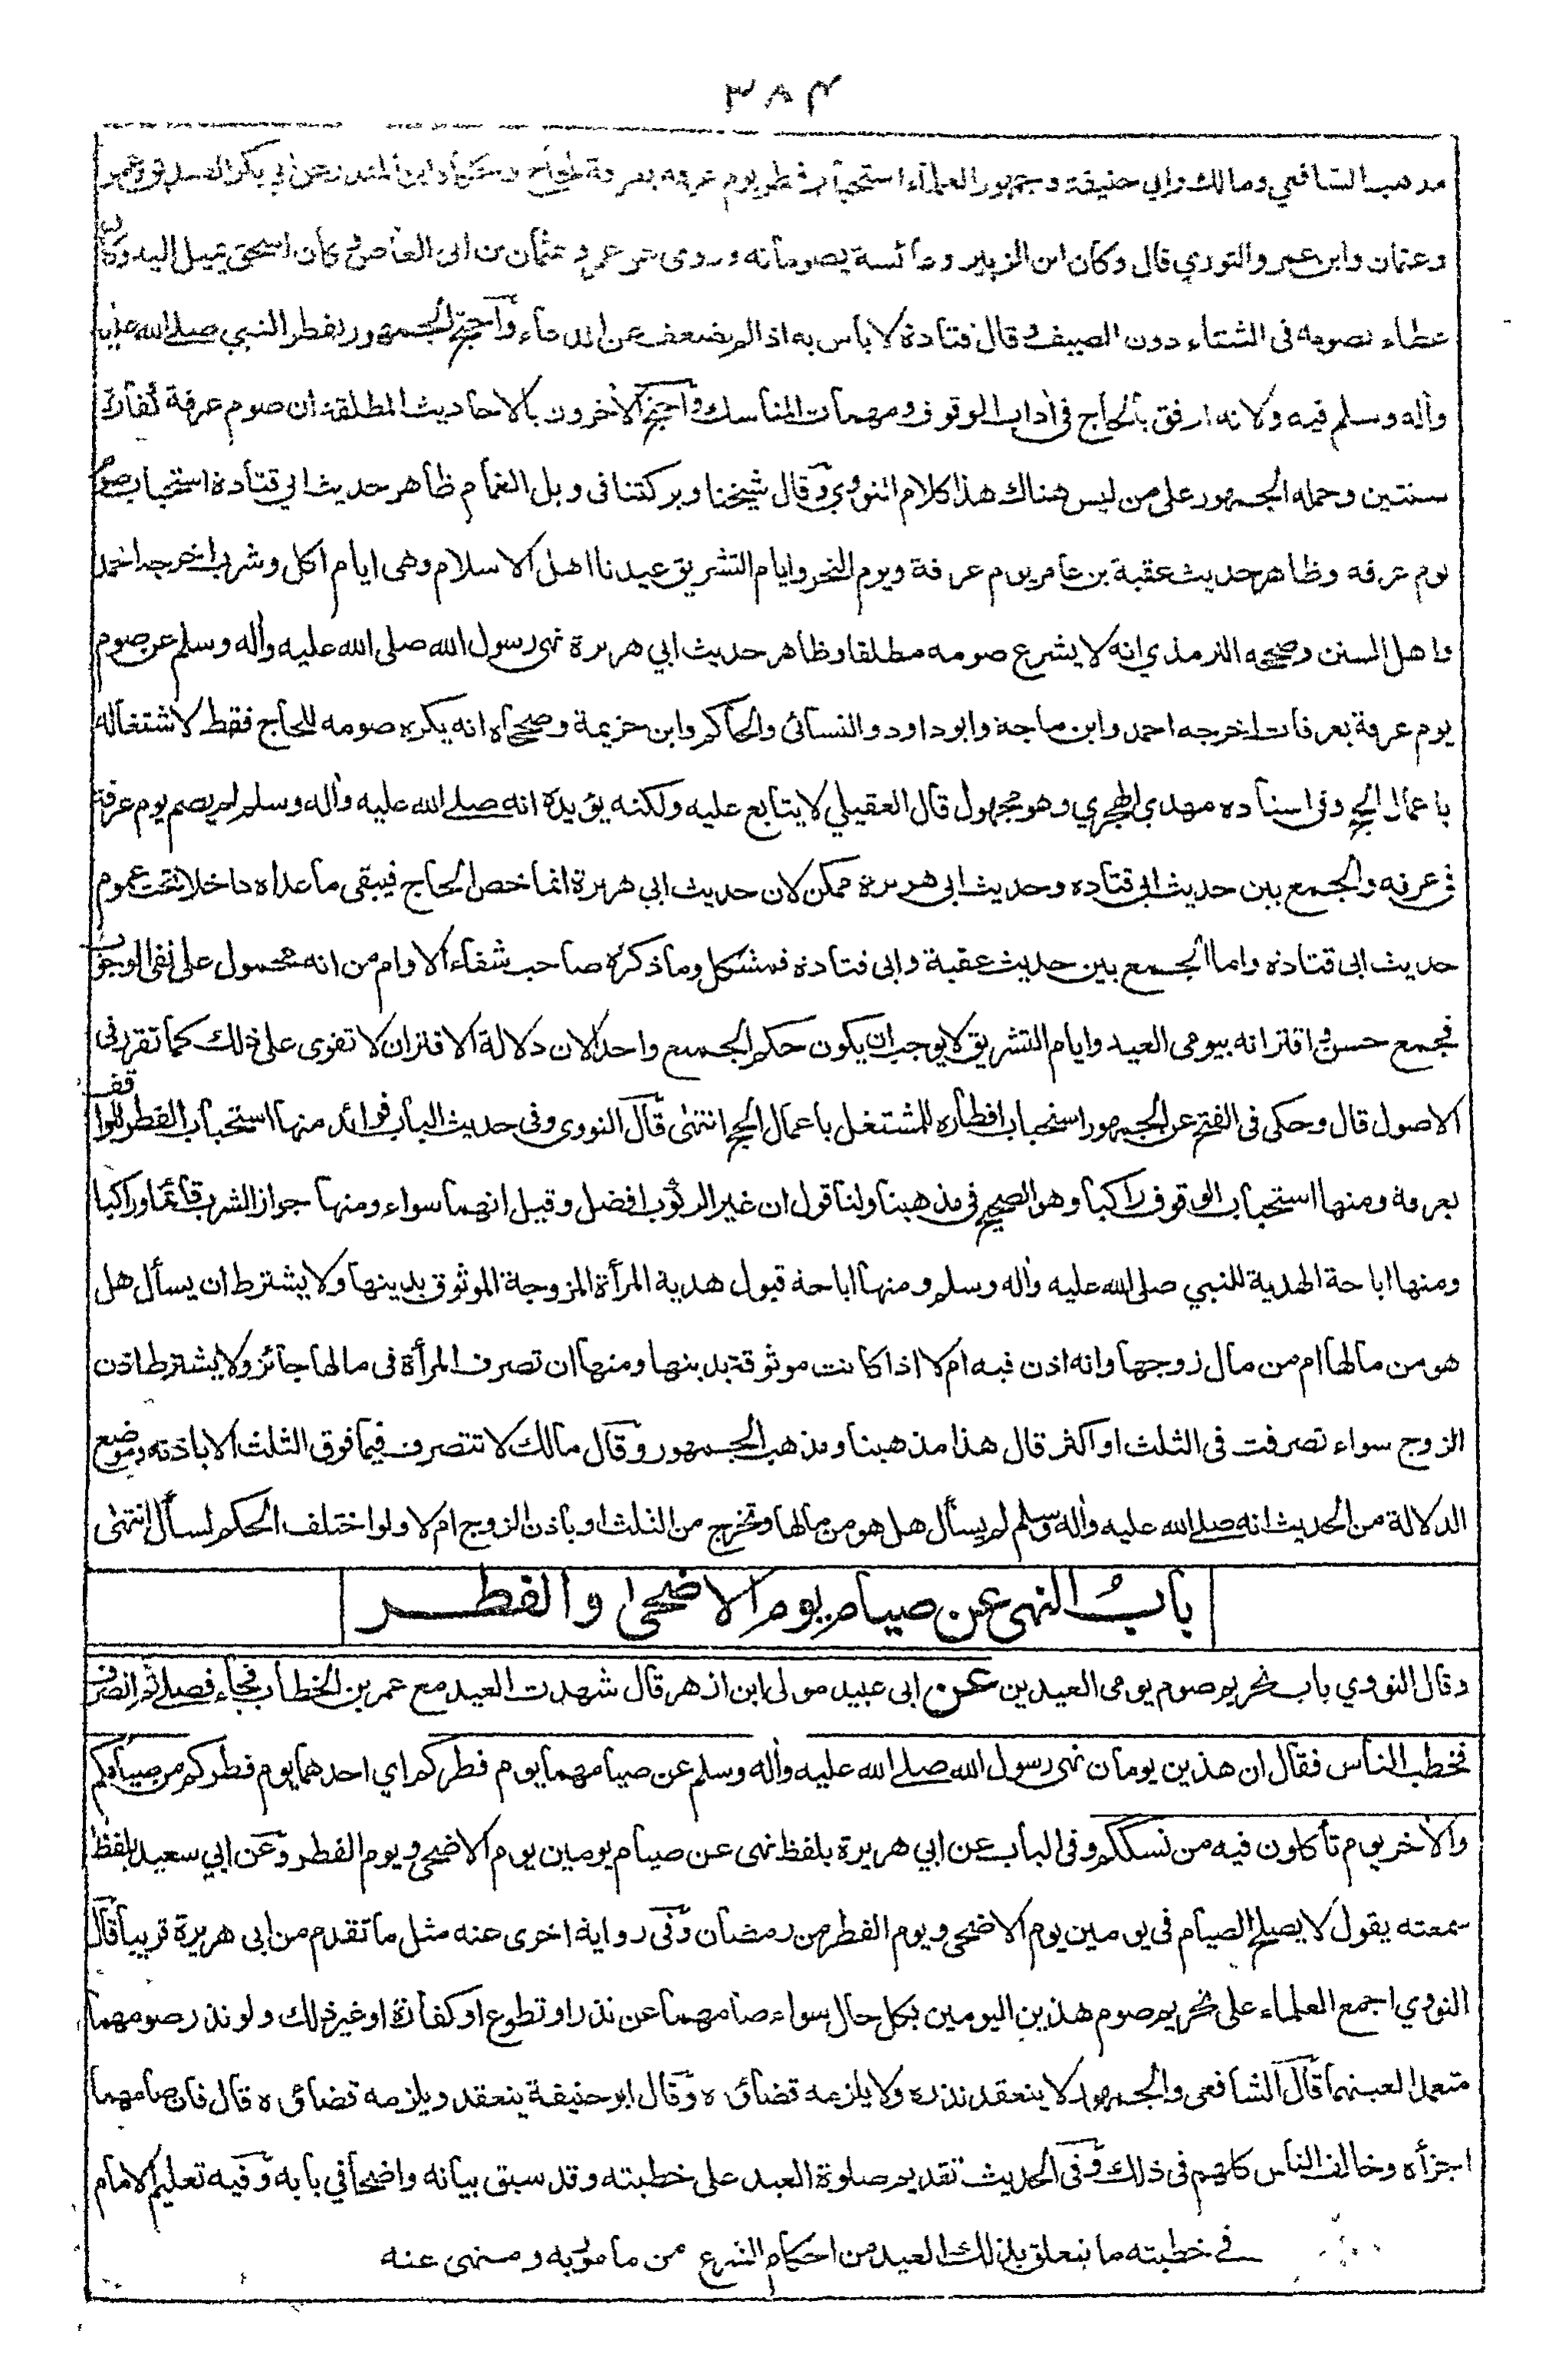 ٣٨٤
مذهب الشافعي ومالك وابي حنيفة وجمهور العلماء استحباب فطر يوم عرفه بعرفة للحاج وحكاه ابن المنذر عن ابي بكر الصديق وعمر
وعثمان وابن عمر والثوري قال وكان ابن الزبير وعائشة يصومانه وروى عن عمر وعثمان بن ابى العاص وكان اسحق يميل اليه وكان
عطاء يصومه فى الشتاء دون الصيف وقال قتادة لا بأس به اذا لم يضعف عن الدعاء واحتج الجمهور بفطر النبي صلى الله عليه
وأله وسلم فيه ولانه ارفق بالحاج فى أداب الوقوف ومهمات المناسك واحتج الأخرون بالاحاديث المطلقة ان صوم عرفة كفارة
سنتين وحمله الجمهور على من ليس هناك هذا كلام النووي وقال شيخنا وبركتنا فى وبل الغمام ظاهر حديث ابي قتادة استحباب صوم
يوم عرفه وظاهر حديث عقبة بن عامر يوم عرفة ويوم النحر وايام التشريق عيدنا اهل الاسلام وهى ايام اكل وشرب اخرجه احمد
واهل السنن وصححه الترمذي انه لا يشرع صومه مطلقا وظاهر حديث ابي هريرة نهى رسول الله صلى الله عليه وأله وسلم عن صوم
يوم عرفة بعرفات اخرجه احمد وابن ماجة وابو داود والنسائى والحاكم وابن خزيمة وصححاه انه يكره صومه للحاج فقط لاشتغاله
باعمال الحج وفى اسناده مهدي الهجري وهو مجهول قال العقيلي لا يتابع عليه ولكنه يؤيده انه صلى الله عليه وأله وسلم لم يصم يوم عرفة
فى عرفه والجمع بين حديث ابى قتاده وحديث ابى هريرة ممكن لان حديث ابي هريرة انما خص الحاج فيبقى ما عداه داخلا تحت عموم
حديث ابى قتادة واما الجمع بين حديث عقبة وابى قتادة فمشكل وما ذكره صاحب شفاء الاوام من انه محمول على نفى الوجوب
فجمع حسن واقترانه بيومى العيد وايام التشريق لا يوجب ان يكون حكم الجميع واحدا لان دلالة الاقتران لا تقوى على ذلك كما تقرر فى
الاصول قال وحكى فى الفتح عن الجمهور استحباب افطاره للمشتغل باعمال الحج انتهى قال النووى وفى حديث الباب فوائد منها استحباب الفطر للواقف
بعرفة ومنها استحباب الوقوف راكبا وهو الصحيح فى مذهبنا ولنا قول ان غير الركوب افضل وقيل انهما سواء ومنها جواز الشرب قائما وراكبا
ومنها اباحة الهدية للنبي صلى الله عليه وأله وسلم ومنها اباحة قبول هدية المرأة المزوجة الموثوق بدينها ولا يشترط ان يسأل هل
هو من مالها ام من مال زوجها وانه اذن فيه ام لا اذا كانت موثوقة بدينها ومنها ان تصرف المرأة فى مالها جائز ولا يشترط اذن
الزوج سواء تصرفت فى الثلث او اكثر قال هذا مذهبنا ومذهب الجمهور وقال مالك لا تتصرف فيما فوق الثلث الا باذنه وموضع
الدلالة من الحديث انه صلى الله عليه وأله وسلم لم يسأل هل هو من مالها وتخرج من الثلث او باذن الزوج ام لا ولو اختلف الحكم لسأل انتهى
باب النهى عن صيام يوم الاضحى والفطر
وقال النووي باب تحريم صوم يومى العيدين عن ابى عبيد مولى ابن ازهر قال شهدت العيد مع عمر بن الخطاب فجاء فصلى ثم انصرف
فخطب الناس فقال ان هذين يومان نهى رسول الله صلى الله عليه وأله وسلم عن صيامهما يوم فطركم اي احدهما يوم فطركم من صيامكم
والأخر يوم تأكلون فيه من نسككم وفى الباب عن ابي هريرة بلفظ نهى عن صيام يومين يوم الاضحى ويوم الفطر وعن ابي سعيد بلفظ
سمعته يقول لا يصلح الصيام فى يومين يوم الاضحى ويوم الفطر من رمضان وفى رواية اخرى عنه مثل ما تقدم من ابى هريرة قريبا قال
النووي اجمع العلماء على تحريم صوم هذين اليومين بكل حال سواء صامهما عن نذر او تطوع او كفارة او غير ذلك ولو نذر صومهما
متعمدا لعينهما قال الشافعى والجمهور لا ينعقد نذره ولا يلزمه قضاؤه وقال ابو حنيفة ينعقد ويلزمه قضاؤه قال فان صامهما
اجزأه وخالف الناس كلهم فى ذلك وفى الحديث تقديم صلوة العيد على خطبته وقد سبق بيانه واضحا في بابه وفيه تعليم الامام
في خطبته ما يتعلق بذلك العيد من احكام الشرع من مأمور به ومنهى عنه